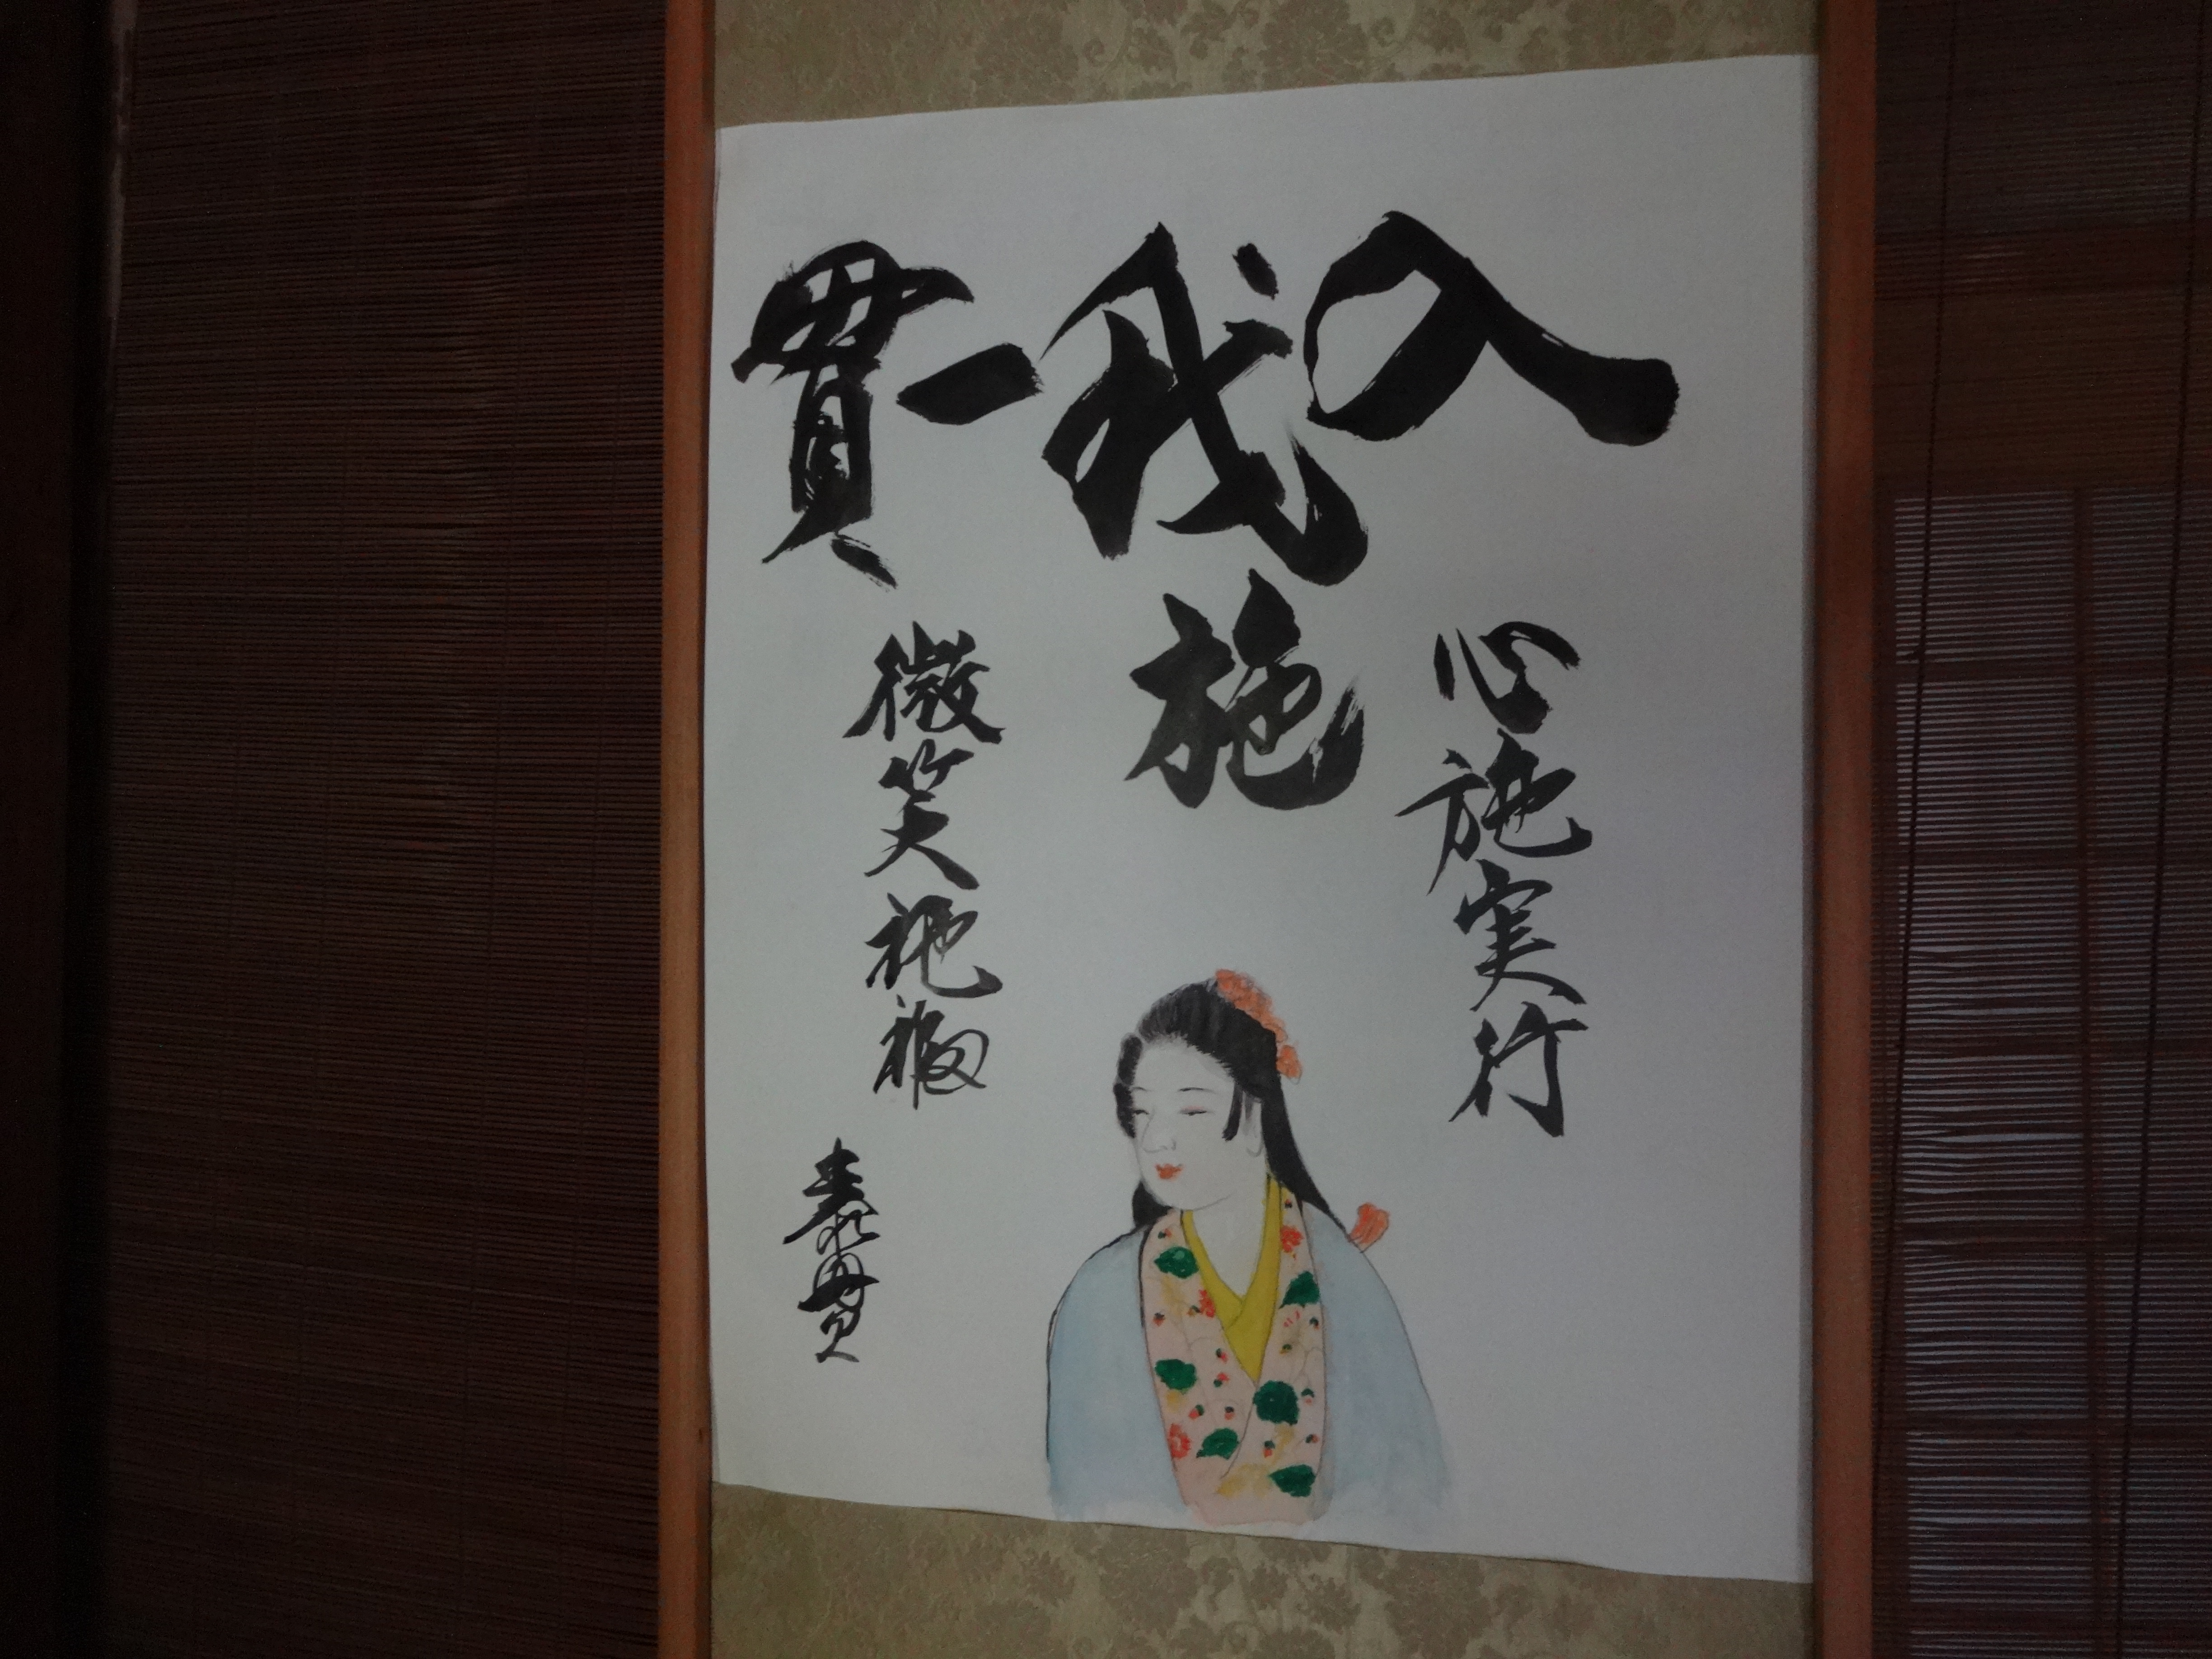 入我一貫
施
心施実行
微笑施福
泰貫